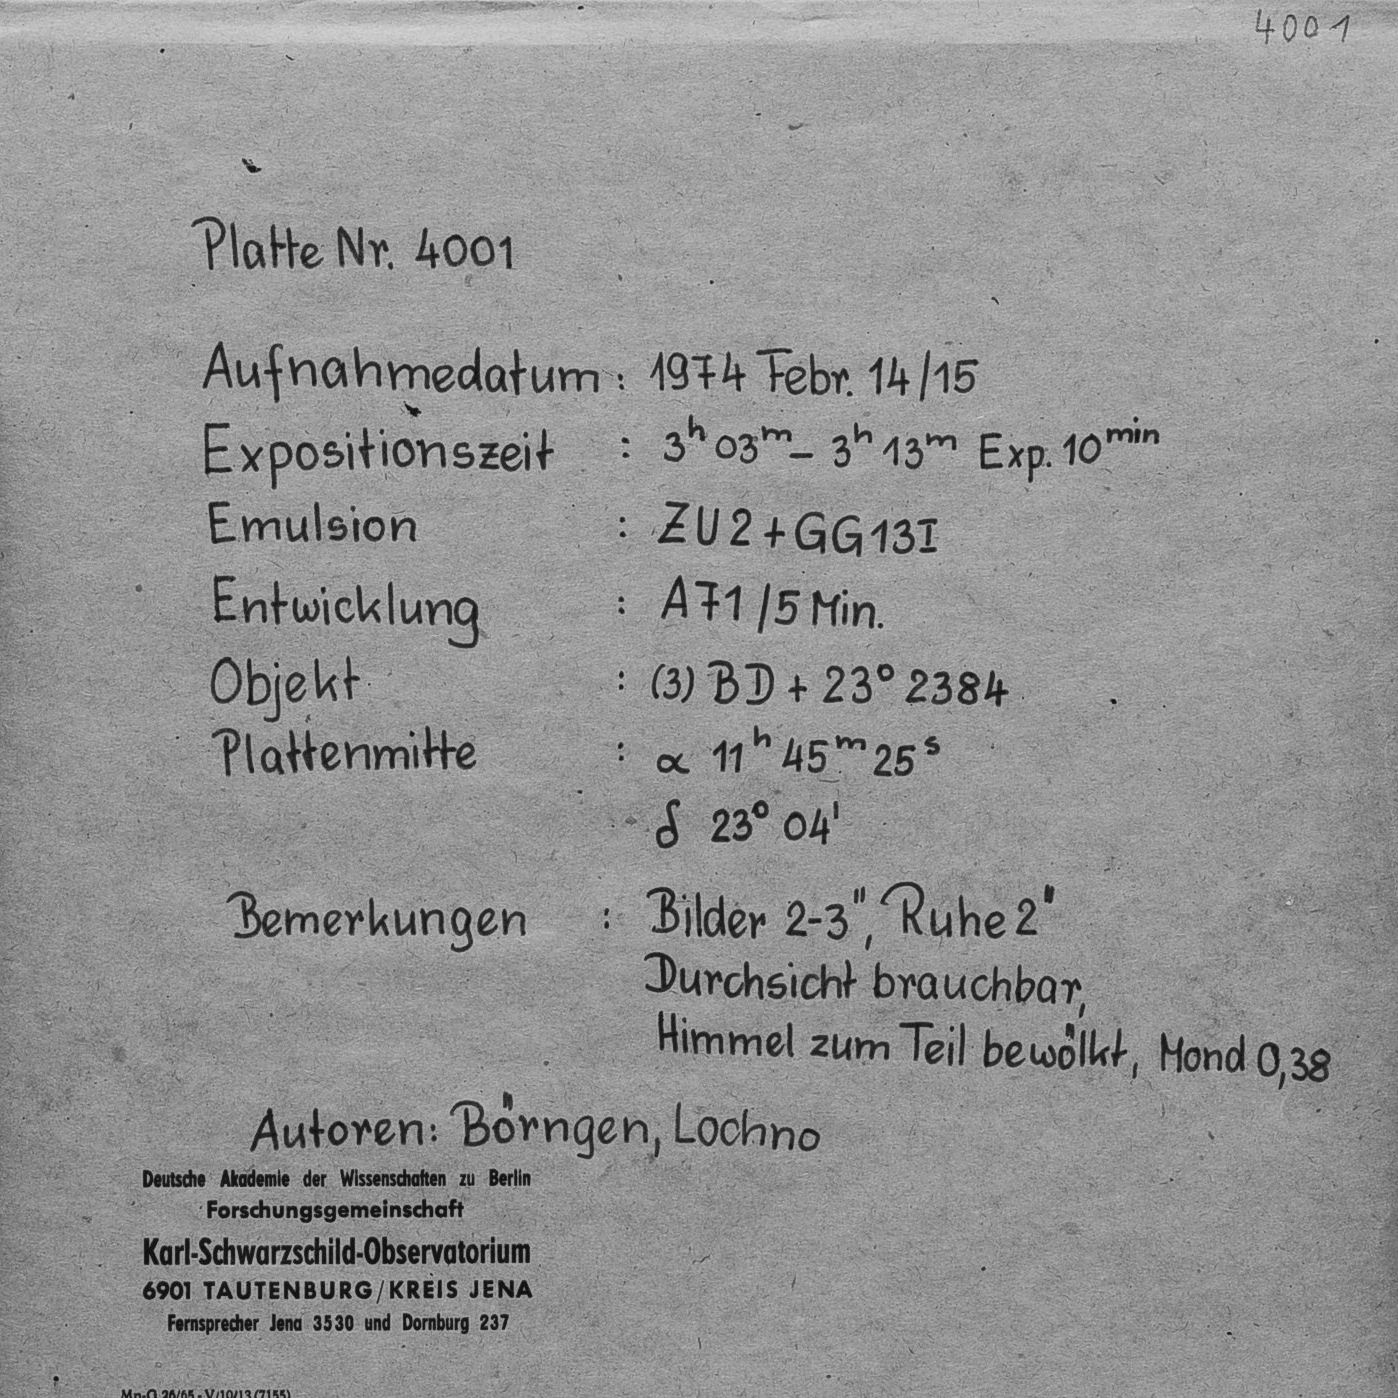 4001
Platte Nr. 4001
Aufnahmedatum : 1974 Febr. 14/15
Expositionszeit : 3ʰ 03ᵐ – 3ʰ 13ᵐ Exp. 10ᵐⁱⁿ
Emulsion : ZU2 + GG13I
Entwicklung : A71 / 5 Min.
Objekt : (3) BD + 23° 2384
Plattenmitte : α 11ʰ 45ᵐ 25ˢ
δ 23° 04'
Bemerkungen : Bilder 2-3", Ruhe 2"
Durchsicht brauchbar,
Himmel zum Teil bewölkt, Mond 0,38
Autoren: Börngen, Lochno
Deutsche Akademie der Wissenschaften zu Berlin
Forschungsgemeinschaft
Karl-Schwarzschild-Observatorium
6901 TAUTENBURG/KREIS JENA
Fernsprecher Jena 3530 und Dornburg 237